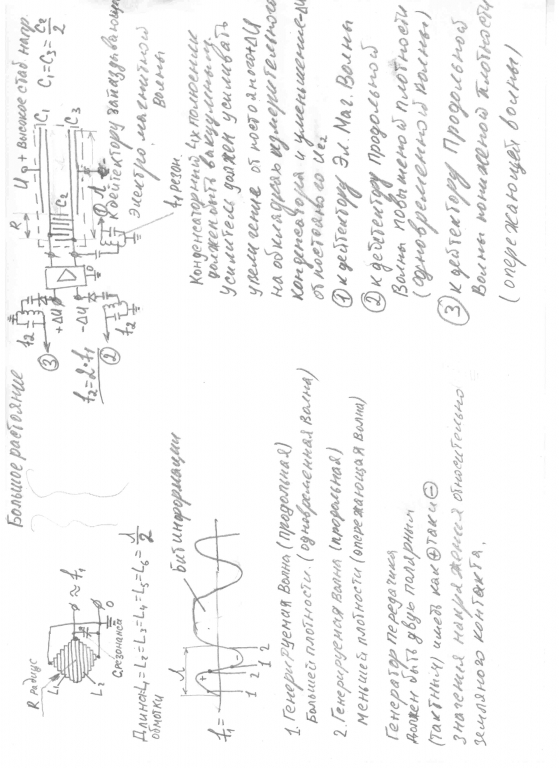 Большое растояние
R радиус
L1
L2
≈ f1
0
C резонанса
Длина L1 = L2 = L3 = L4 = L5 = L6 = λ/2
обмотки
f1 =
λ
+
1 2 1 2
Бит информации
1. Генерируемая волна (продольная)
большей плотности. (одновременная волна)
2. Генерируемая волна
меньшей плотности (опережающая волна)
Генератор передатчика
должен быть двух полярным
(тактным) иметь как ⊕ так и ⊖
значения напряжения относительно
земляного контакта.
U0 + высокое стаб. напр.
C1 = C3 = C2/2
R
C1
C2
C3
λ
① к дейтектору запаздывающей
электро. магнитной
волны
f1 резон.
f2
+ΔU
-ΔU
0
③
②
f2 = 2·f1
Конденсаторный 4х полюсник
должен быть вакуумным.
Усилитель должен усиливать
увеличение от постоянного +ΔU
на обкладках измерительного
конденсатора и уменьшение -ΔU
от постоянного Uc2
① к дейтектору Эл. Маг. Волны
② к дейтектору Продольной
Волны повышеной плотности
(одновременной волны)
③ к дейтектору Продольной
Волны пониженой плотности
(опережающей волны)